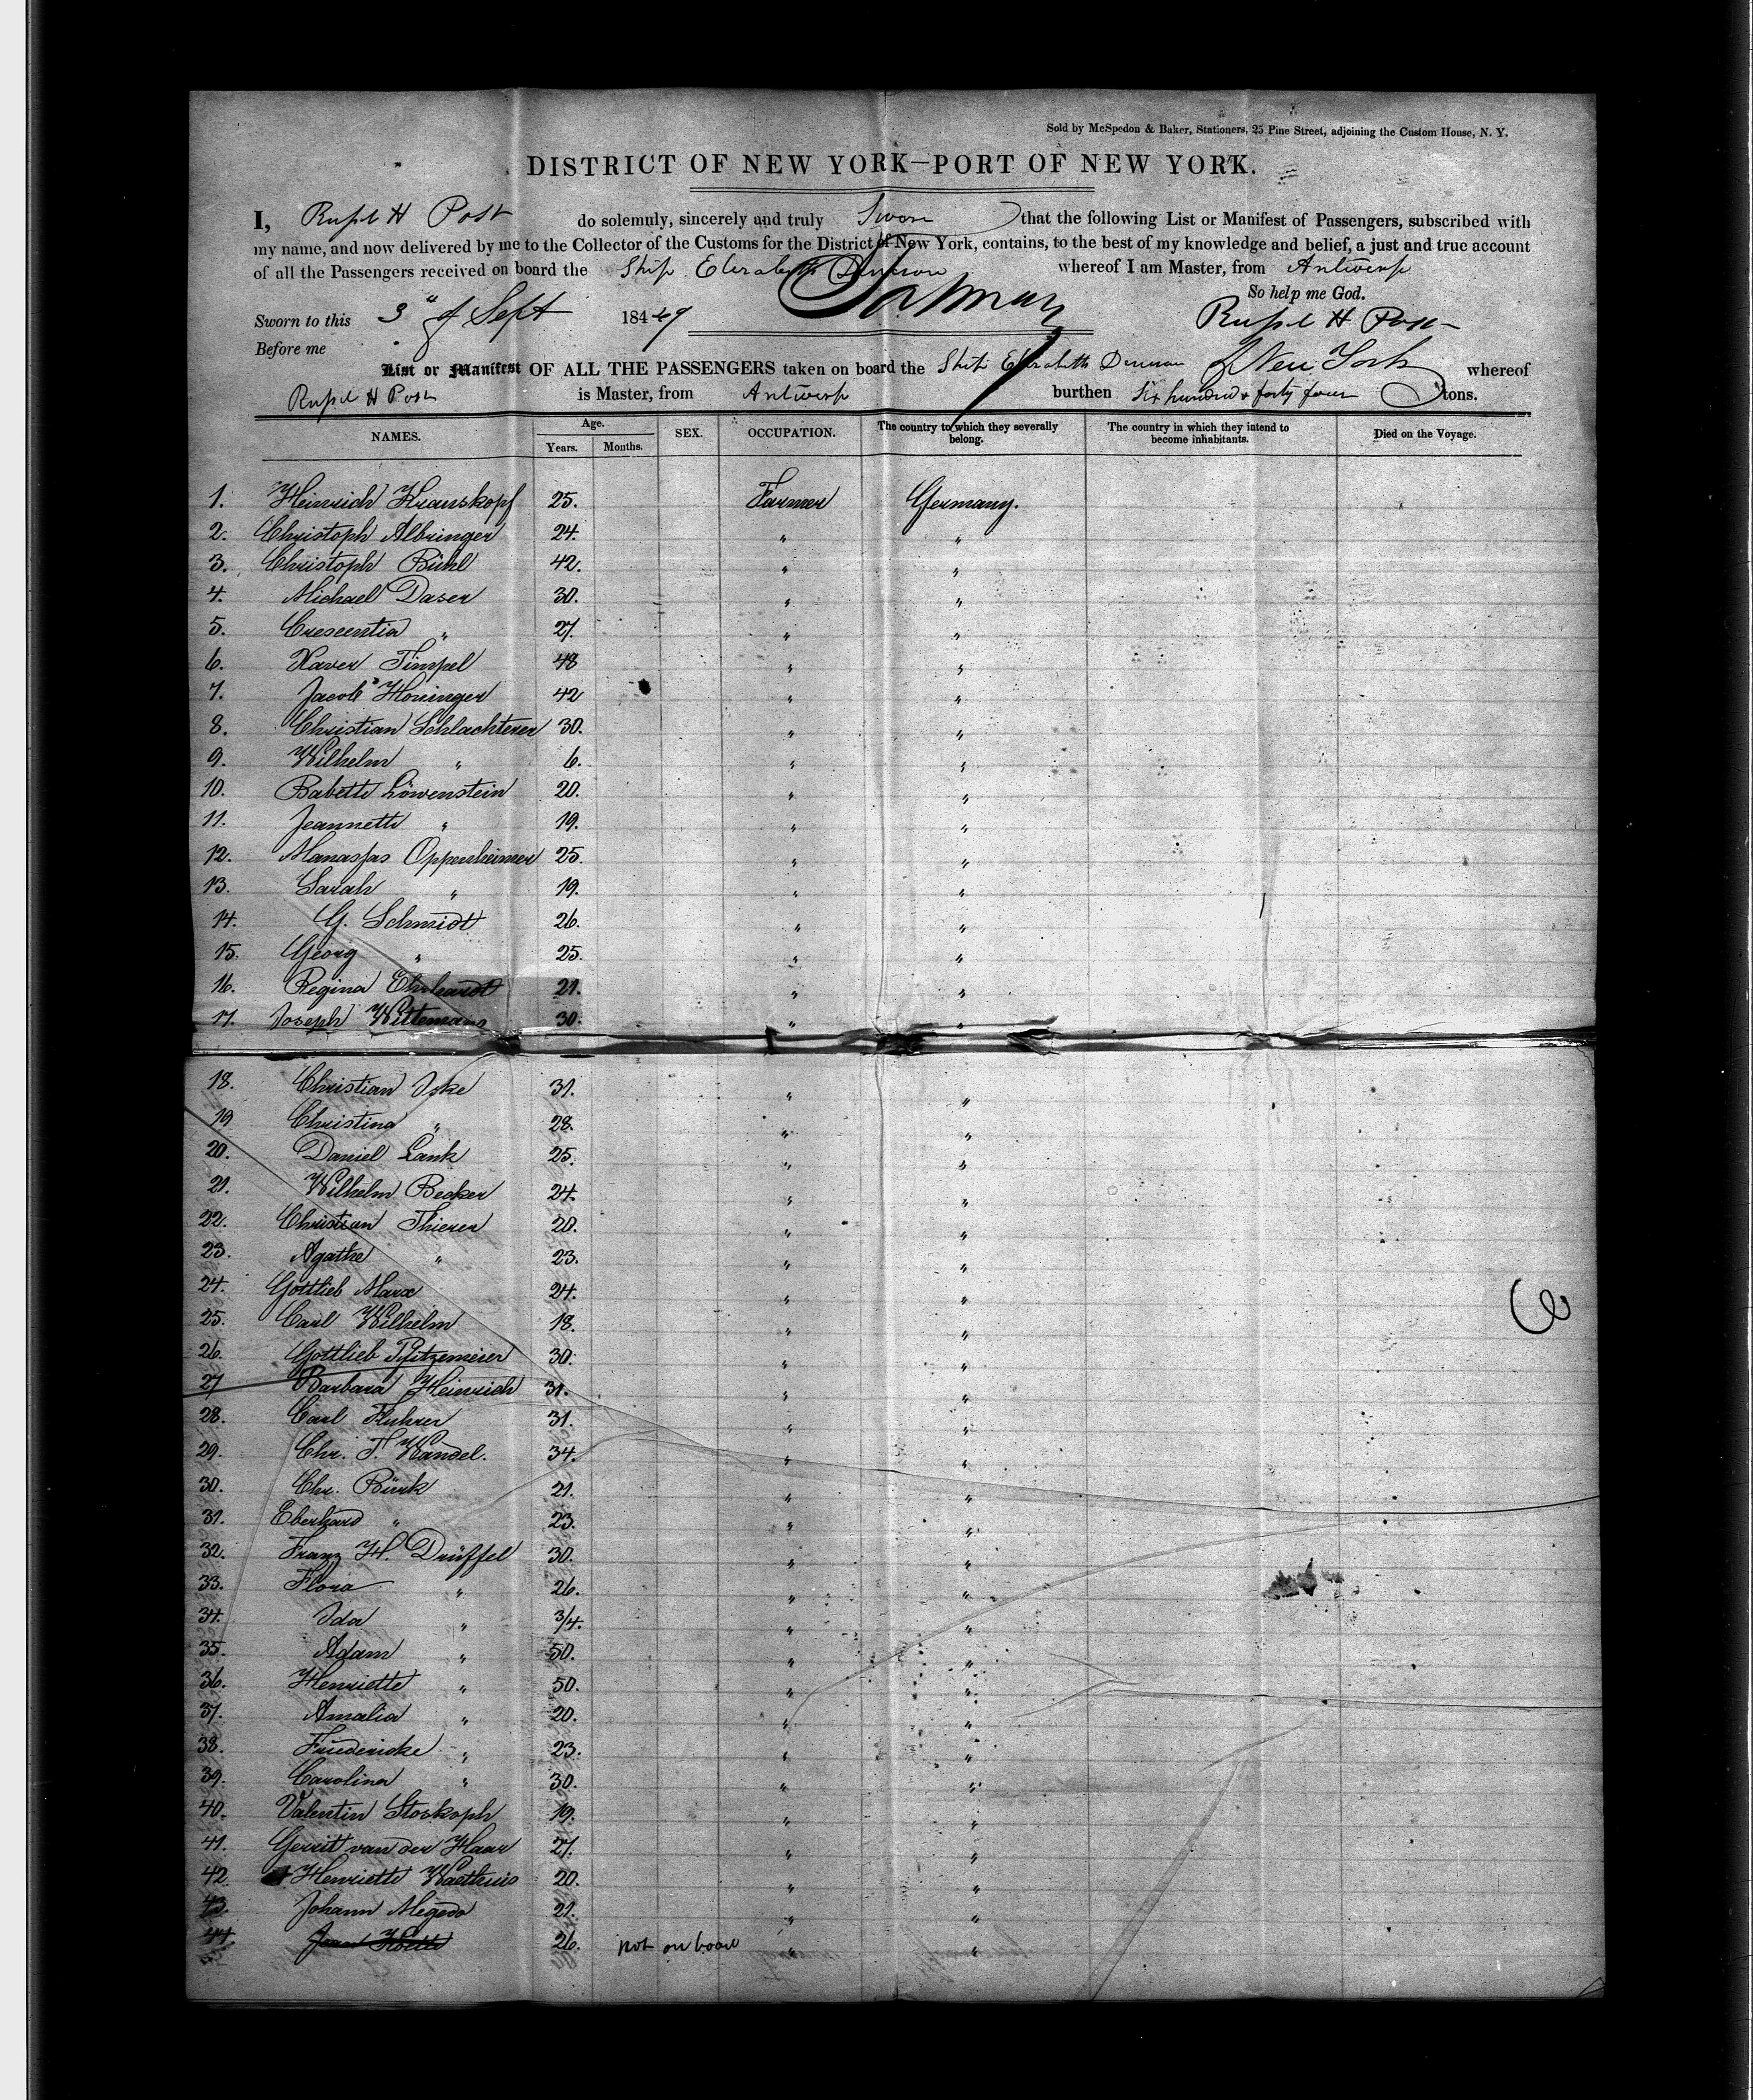 Sold by McSpedon & Baker, Stationers, 25 Pine Street, adjoining the Custom House, N. Y.
DISTRICT OF NEW YORK—PORT OF NEW YORK.
I, Russel H Post do solemnly, sincerely and truly Swear that the following List or Manifest of Passengers, subscribed with
my name, and now delivered by me to the Collector of the Customs for the District of New York, contains, to the best of my knowledge and belief, a just and true account
of all the Passengers received on board the Ship Elizabeth Denison whereof I am Master, from Antwerp
So help me God.
Sworn to this 3" of Sept 184 49 Russel H Post
Before me
List or Manifest OF ALL THE PASSENGERS taken on board the Ship Elizabeth Denison of New York whereof
Russel H Post is Master, from Antwerp burthen Six hundred & forty four tons.
NAMES. Age. Years. Months. SEX. OCCUPATION. The country to which they severally belong. The country in which they intend to become inhabitants. Died on the Voyage.
1. Heinrich Krauskopf 25. Farmer Germany.
2. Christoph Albringer 24. " "
3. Christoph Bühl 42. " "
4. Michael Daser 30. " "
5. Crescentia " 27. " "
6. Xaver Timpel 48 " "
7. Jacob Honinger 42 " "
8. Christian Schlachterer 30. " "
9. Wilhelm " 6. " "
10. Babette Löwenstein 20. " "
11. Jeannette " 19. " "
12. Manasses Oppenheimer 25. " "
13. Sarah " 19. " "
14. G. Schmidt 26. " "
15. Georg " 25. " "
16. Regina Ehrhardt 21. " "
17. Joseph Wittemann 30. " "
18. Christian Iske 31. " "
19 Christina " 28. " "
20. Daniel Lank 25. " "
21. Wilhelm Becker 24. " "
22. Christian Thierer 20. " "
23. Agathe " 23. " "
24. Gottlieb Marx 24. " "
25. Carl Wilhelm 18. " "
26. Gottlieb Pfitzemeier 30. " "
27 Barbara Heinrich 31. " "
28. Carl Fluhrer 31. " "
29. Chr. F. Wandel. 34. " "
30. Chr. Bürk 21. " "
31. Eberhard " 23. " "
32. Franz H. Drüffel 30. " "
33. Flora " 26. " "
34. Ida " 3/4. " "
35. Adam " 50. " "
36. Henriette " 50. " "
37. Amalia " 20. " "
38. Friedericke " 23. " "
39. Carolina " 30. " "
40. Valentin Stoskoph 19. " "
41. Gerrit van der Haar 27. " "
42. Henriette 20. " "
43. Johann Megedo 21. " "
44. 26. not on board " "